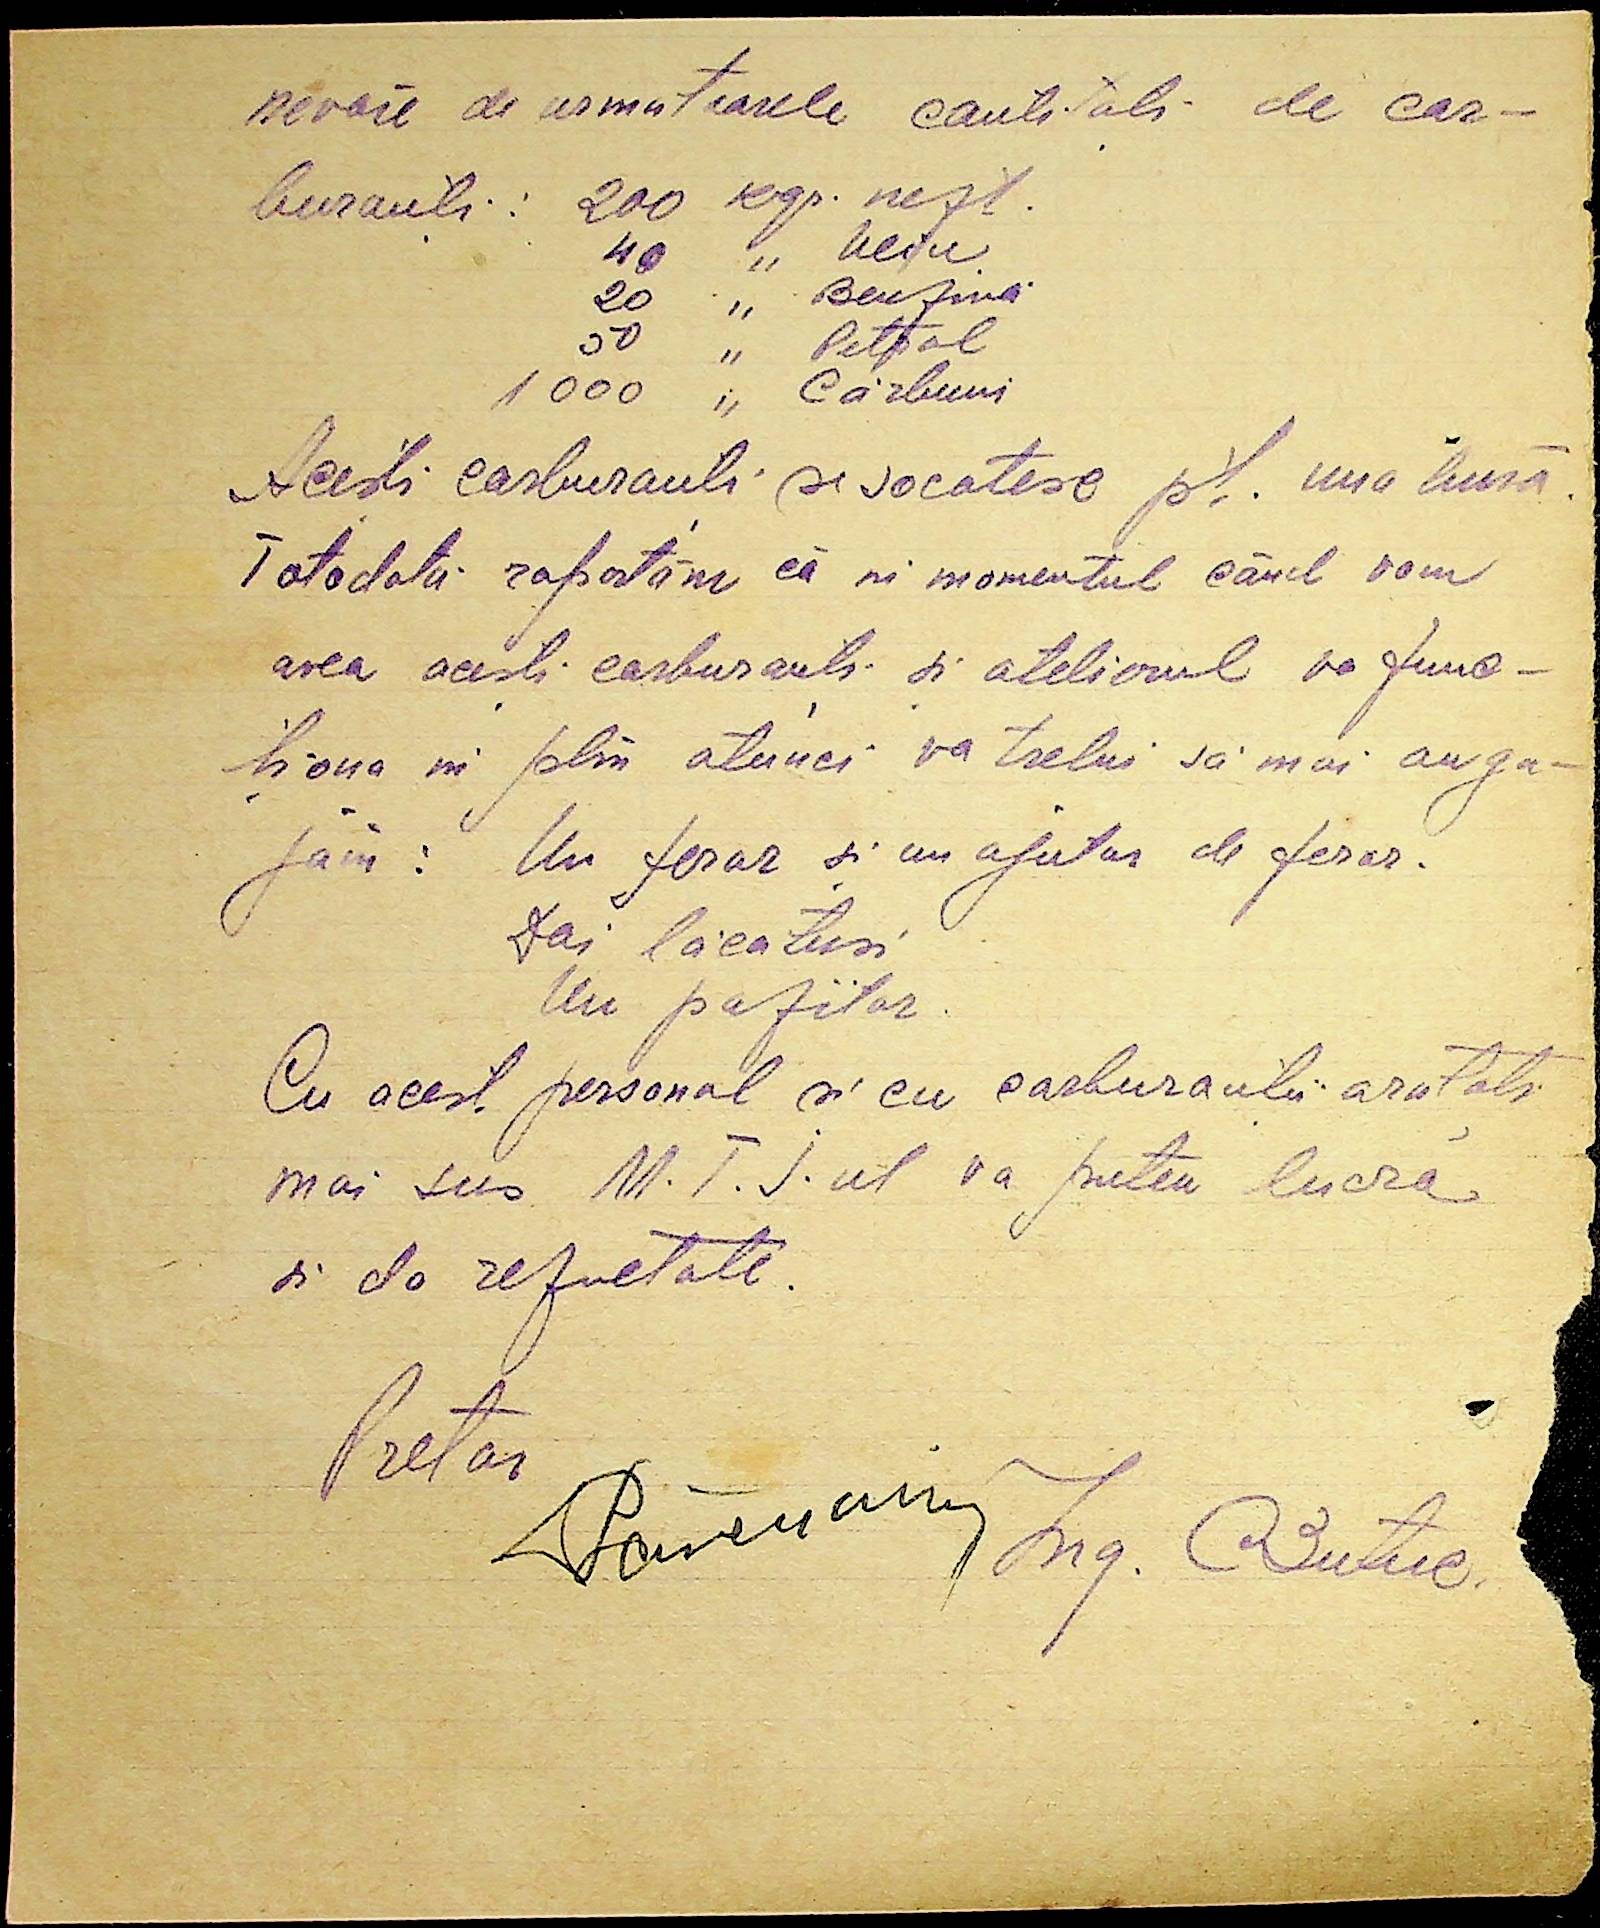 nevoie de următoarele cantități de car-
buranți: 200 kgr. neft.
40 " Ulei
20 " Benzină
50 " Petrol
1000 " Cărbuni
Acești carburanți se socotesc pt. una lună.
Totodată raportăm că în momentul când vom
avea acești carburanți și atelierul va func-
ționa în plin atunci va trebui să mai anga-
jăm: Un ferar și un ajutor de ferar.
Doi lăcătuși
Un paznitor.
Cu acest personal și cu carburanții arătați
mai sus M.T.S.ul va putea lucra
și da rezultate.
Pretor
Ing. Butuc.